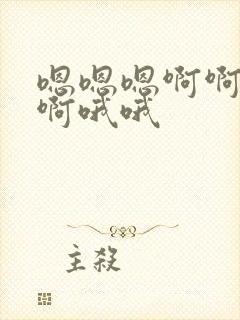 嗯嗯嗯啊啊
啊哦哦
主殺